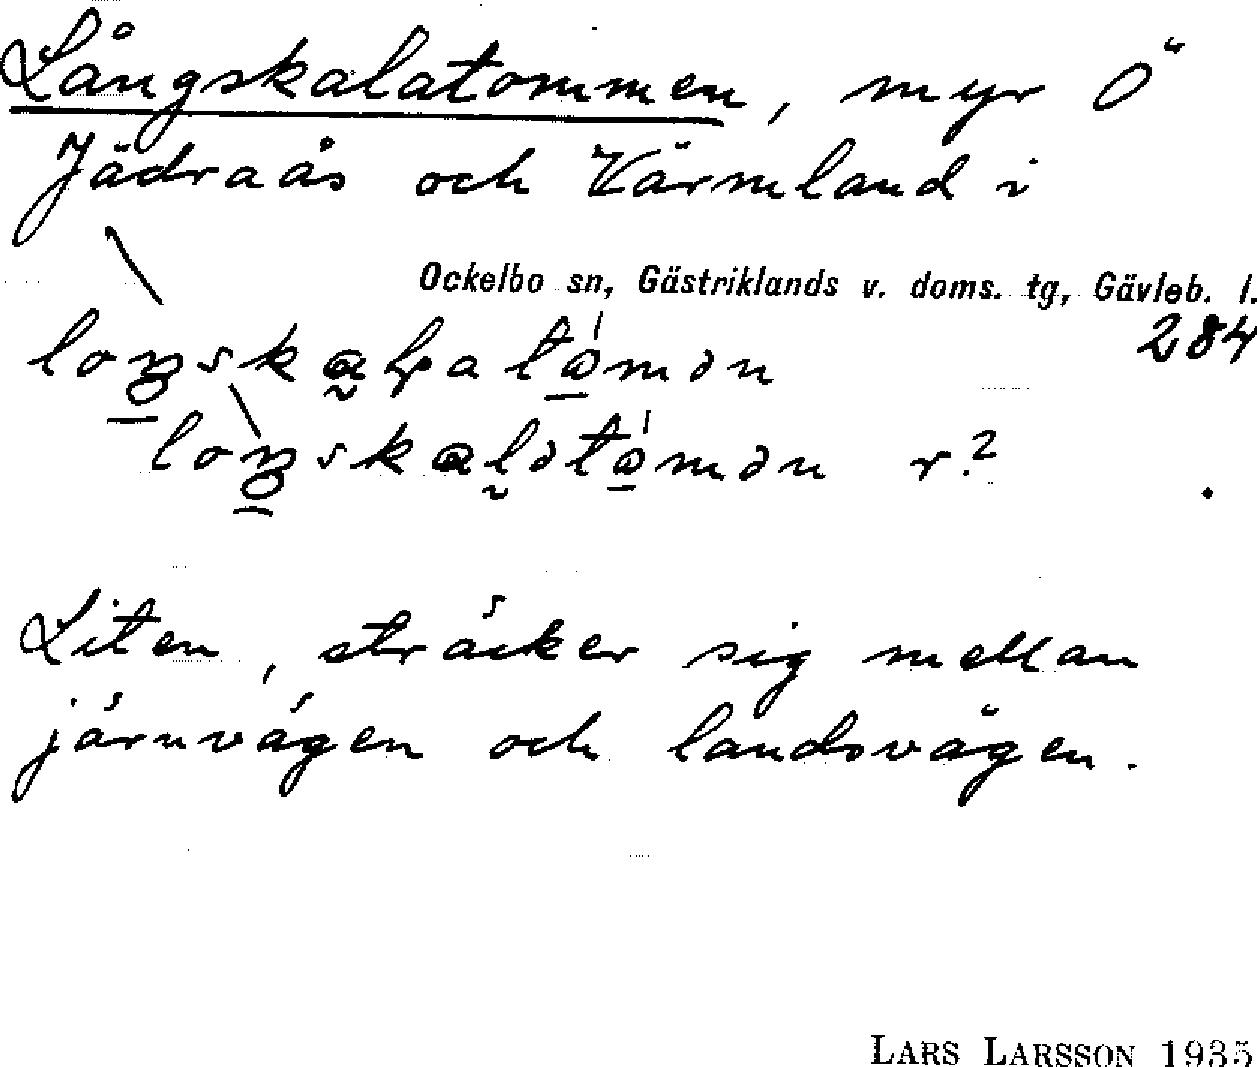 Långskalatommen, myr Ö
Jädraås och Värmland i
Ockelbo sn, Gästriklands v. doms. tg, Gävleb. l.
284
r.?
Liten, sträcker sig mellan
järnvägen och landsvägen.
LARS LARSSON 1935